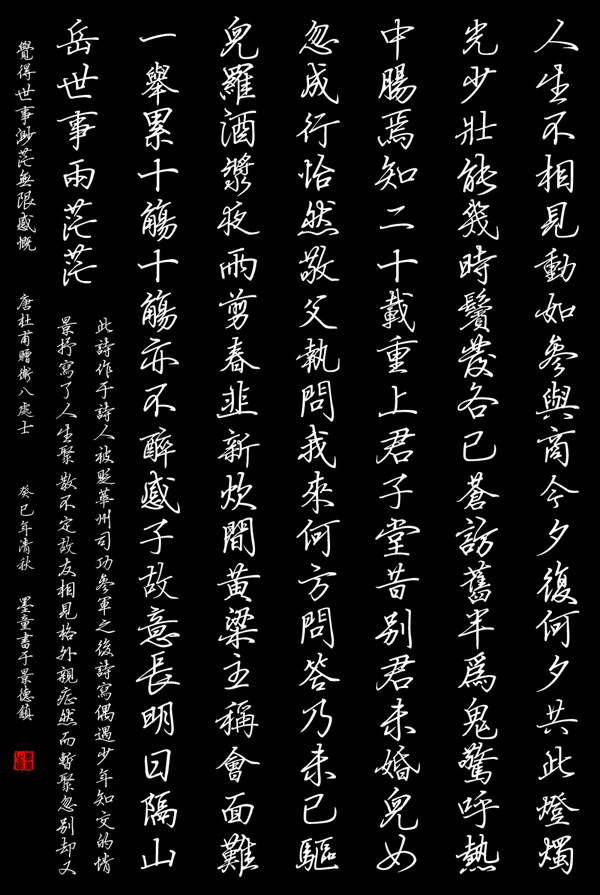 人生不相見動如參與商今夕復何夕共此燈燭
光少壯能幾時鬢發各已蒼訪舊半爲鬼驚呼熱
中腸焉知二十載重上君子堂昔別君未婚兒女
忽成行怡然敬父執問我來何方問答乃未已驅
兒羅酒漿夜雨剪春韭新炊間黃粱主稱會面難
一舉累十觴十觴亦不醉感子故意長明日隔山
岳世事兩茫茫
此詩作于詩人被貶華州司功參軍之後詩寫偶遇少年知交的情
景抒寫了人生聚散不定故友相見格外親症然而暫聚忽別却又
覺得世事渺茫無限感慨 唐杜甫贈衛八處士 癸巳年清秋 墨童書于景德鎮